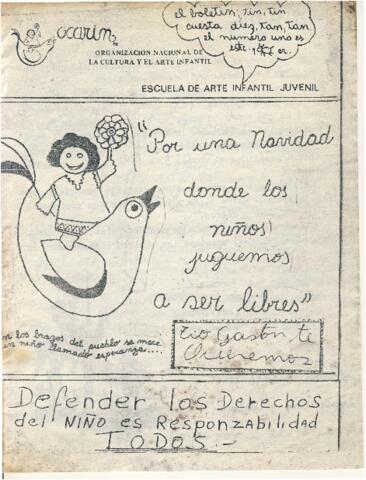 ocarin
ORGANIZACION NACIONAL DE
LA CULTURA Y EL ARTE INFANTIL
el boletín, tín, tín
cuesta diez, tan, tan
el numero uno es
este.
ESCUELA DE ARTE INFANTIL JUVENIL
"Por una Navidad
donde los
niños
juguemos
a ser libres"
n los brazos del pueblo se mece
un niño llamado esperanza....
Tío Gastón te
Queremos
Defender los Derechos
del NIÑO es RESPONZABILIDAD
TODOS.-